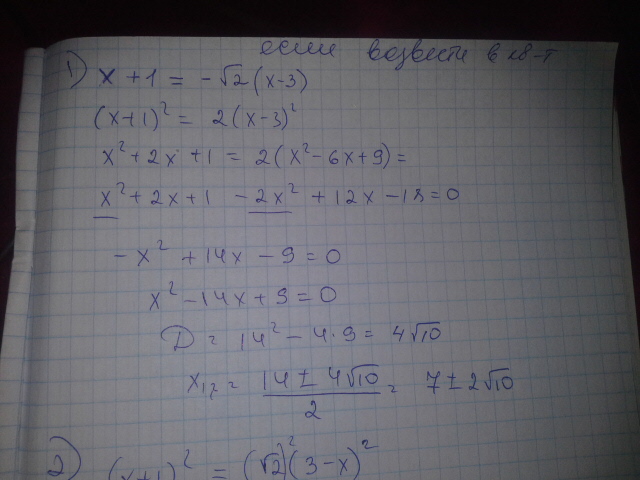 если возвести в кв-т
1) x + 1 = -√2 (x-3)
(x+1)² = 2(x-3)²
x² + 2x + 1 = 2(x² - 6x + 9) =
x² + 2x + 1 - 2x² + 12x - 18 = 0
- x² + 14x - 9 = 0
x² - 14x + 9 = 0
D = 14² - 4·9 = 4√10
x₁,₂ = (14 ± 4√10)/2 = 7 ± 2√10
2) (x+1)² = (√2)²(3-x)²